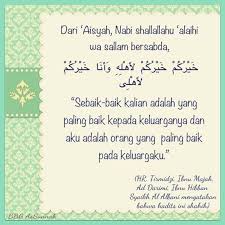 Dari 'Aisyah, Nabi shallallahu 'alaihi
wa sallam bersabda,
خَيْرُكُمْ خَيْرُكُمْ لأَهْلِهِ وَأَنَا خَيْرُكُمْ
لأَهْلِي
"Sebaik-baik kalian adalah yang
paling baik kepada keluarganya dan
aku adalah orang yang paling baik
pada keluargaku."
(HR. Tirmidzi, Ibnu Majah,
Ad Darimi, Ibnu Hibban
Syaikh Al Albani mengatakan
bahwa hadits ini shahih)